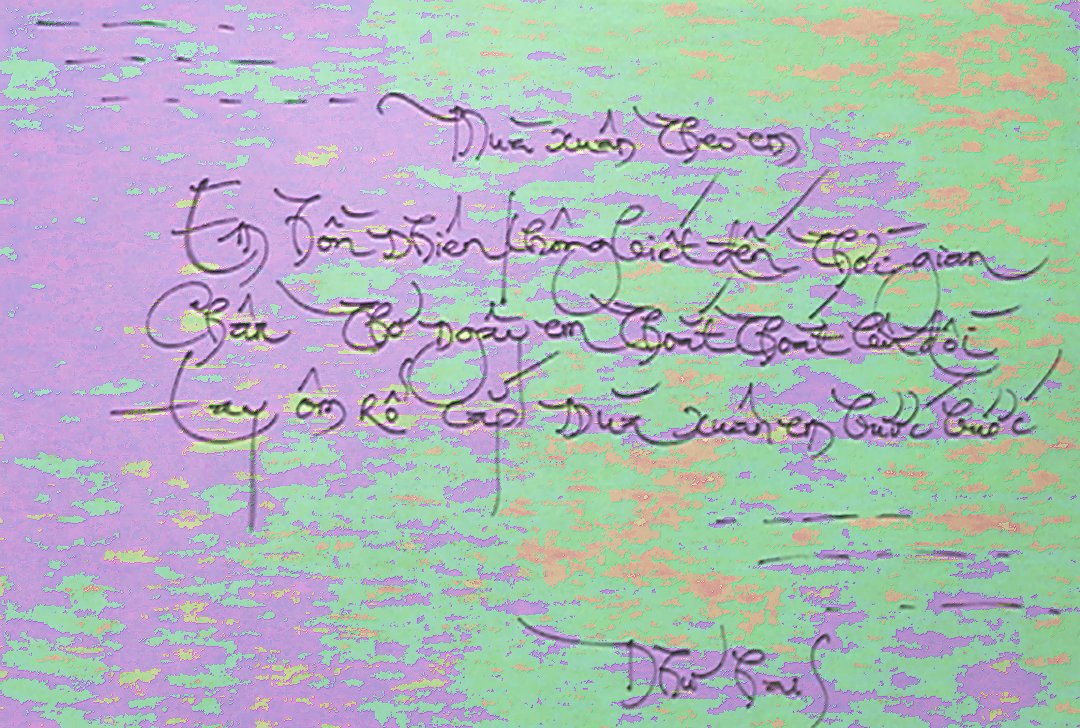 Mùa xuân theo em
Em hồn nhiên không biết đến thời gian
Chân thơ ngây em thoăn thoắt lên đồi
Tay ôm rổ cắp mùa xuân em bước bước
Như